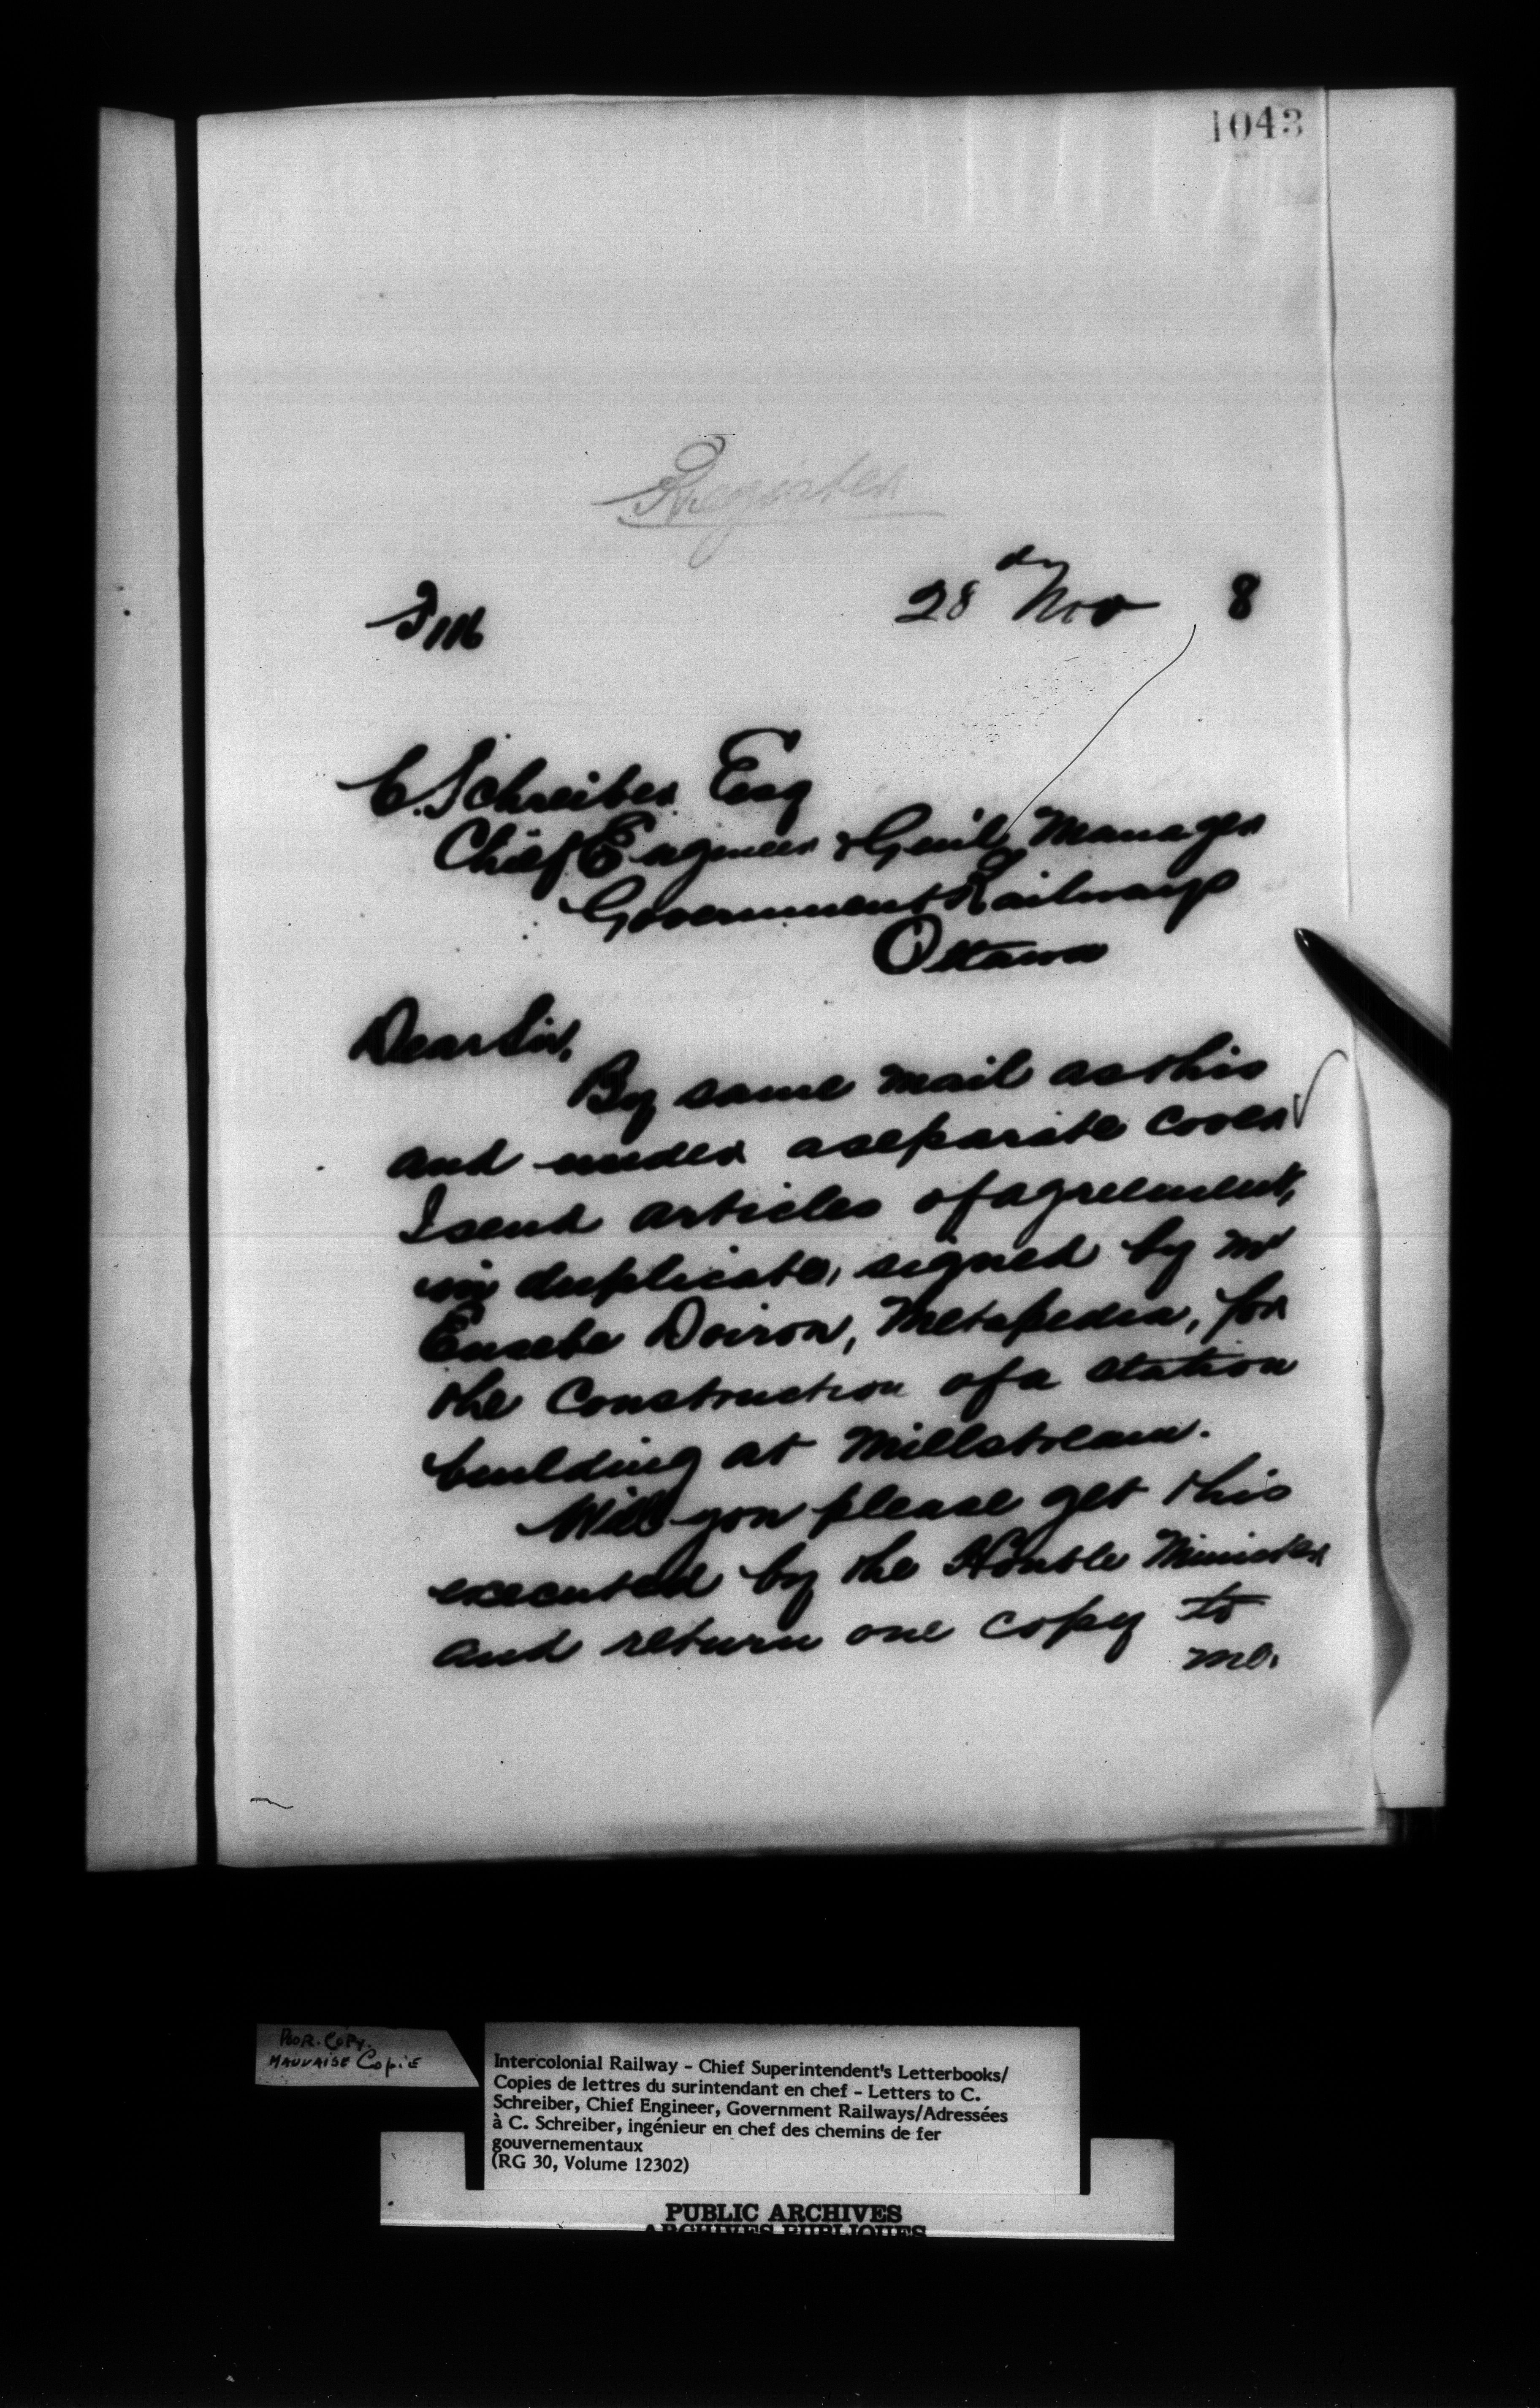 1043
Register
28th Nov 8
C. Schreiber Esq
Chief Engineer & Genl Manager
Government Railways
Ottawa
Dear Sir,
By same mail as this
and under a separate cover
I send articles of agreement,
in duplicate, signed by Mr
Eusebe Doiron, Metapedia, for
the Construction of a station
building at Millstream.
Will you please get this
executed by the Honble Minister
and return one copy to
me.
POOR. COPY.
MAUVAISE COPIE
Intercolonial Railway - Chief Superintendent's Letterbooks/
Copies de lettres du surintendant en chef - Letters to C.
Schreiber, Chief Engineer, Government Railways/Adressées
à C. Schreiber, ingénieur en chef des chemins de fer
gouvernementaux
(RG 30, Volume 12302)
PUBLIC ARCHIVES
ARCHIVES PUBLIQUES